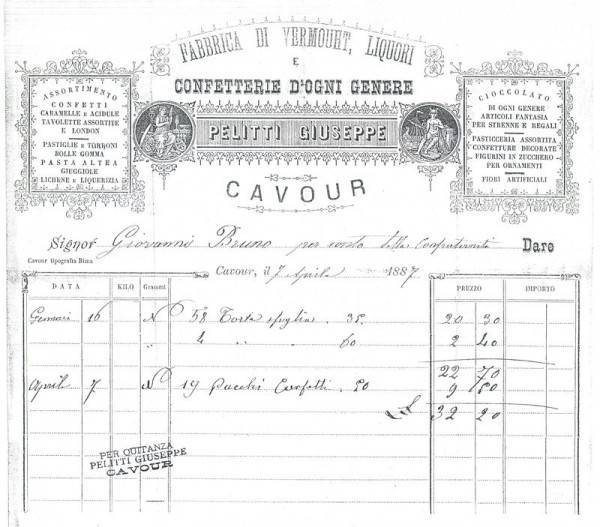 FABBRICA DI VERMOUHT, LIQUORI
E
CONFETTERIE D'OGNI GENERE
PELITTI GIUSEPPE
CAVOUR
ASSORTIMENTO
CONFETTI
CARAMELLE E ACIDULE
TAVOLETTE ASSORTITE
E LONDON
PASTIGLIE E TORRONI
BOLLE GOMMA
PASTA ALTEA
GIUGGIOLE
LICHENE E LIQUERIZIA
CIOCCOLATO
DI OGNI GENERE
ARTICOLI FANTASIA
PER STRENNE E REGALI
PASTICCERIA ASSORTITA
CONFETTURE DECORATE
FIGURINI IN ZUCCHERO
PER ORNAMENTI
FIORI ARTIFICIALI
Signor Giovanni Bruno per conto della Confraternita Dare
Cavour tipografia Bima
Cavour, il 7 Aprile 1887
DATA KILO Grammi PREZZO IMPORTO
16 N 58 Torta sfoglia . 35. 20 30
4 " " 60 2 40
22 70
April 7 N 19 Pacchi Confetti . 50 9 50
32 20
PER QUITANZA
PELITTI GIUSEPPE
CAVOUR